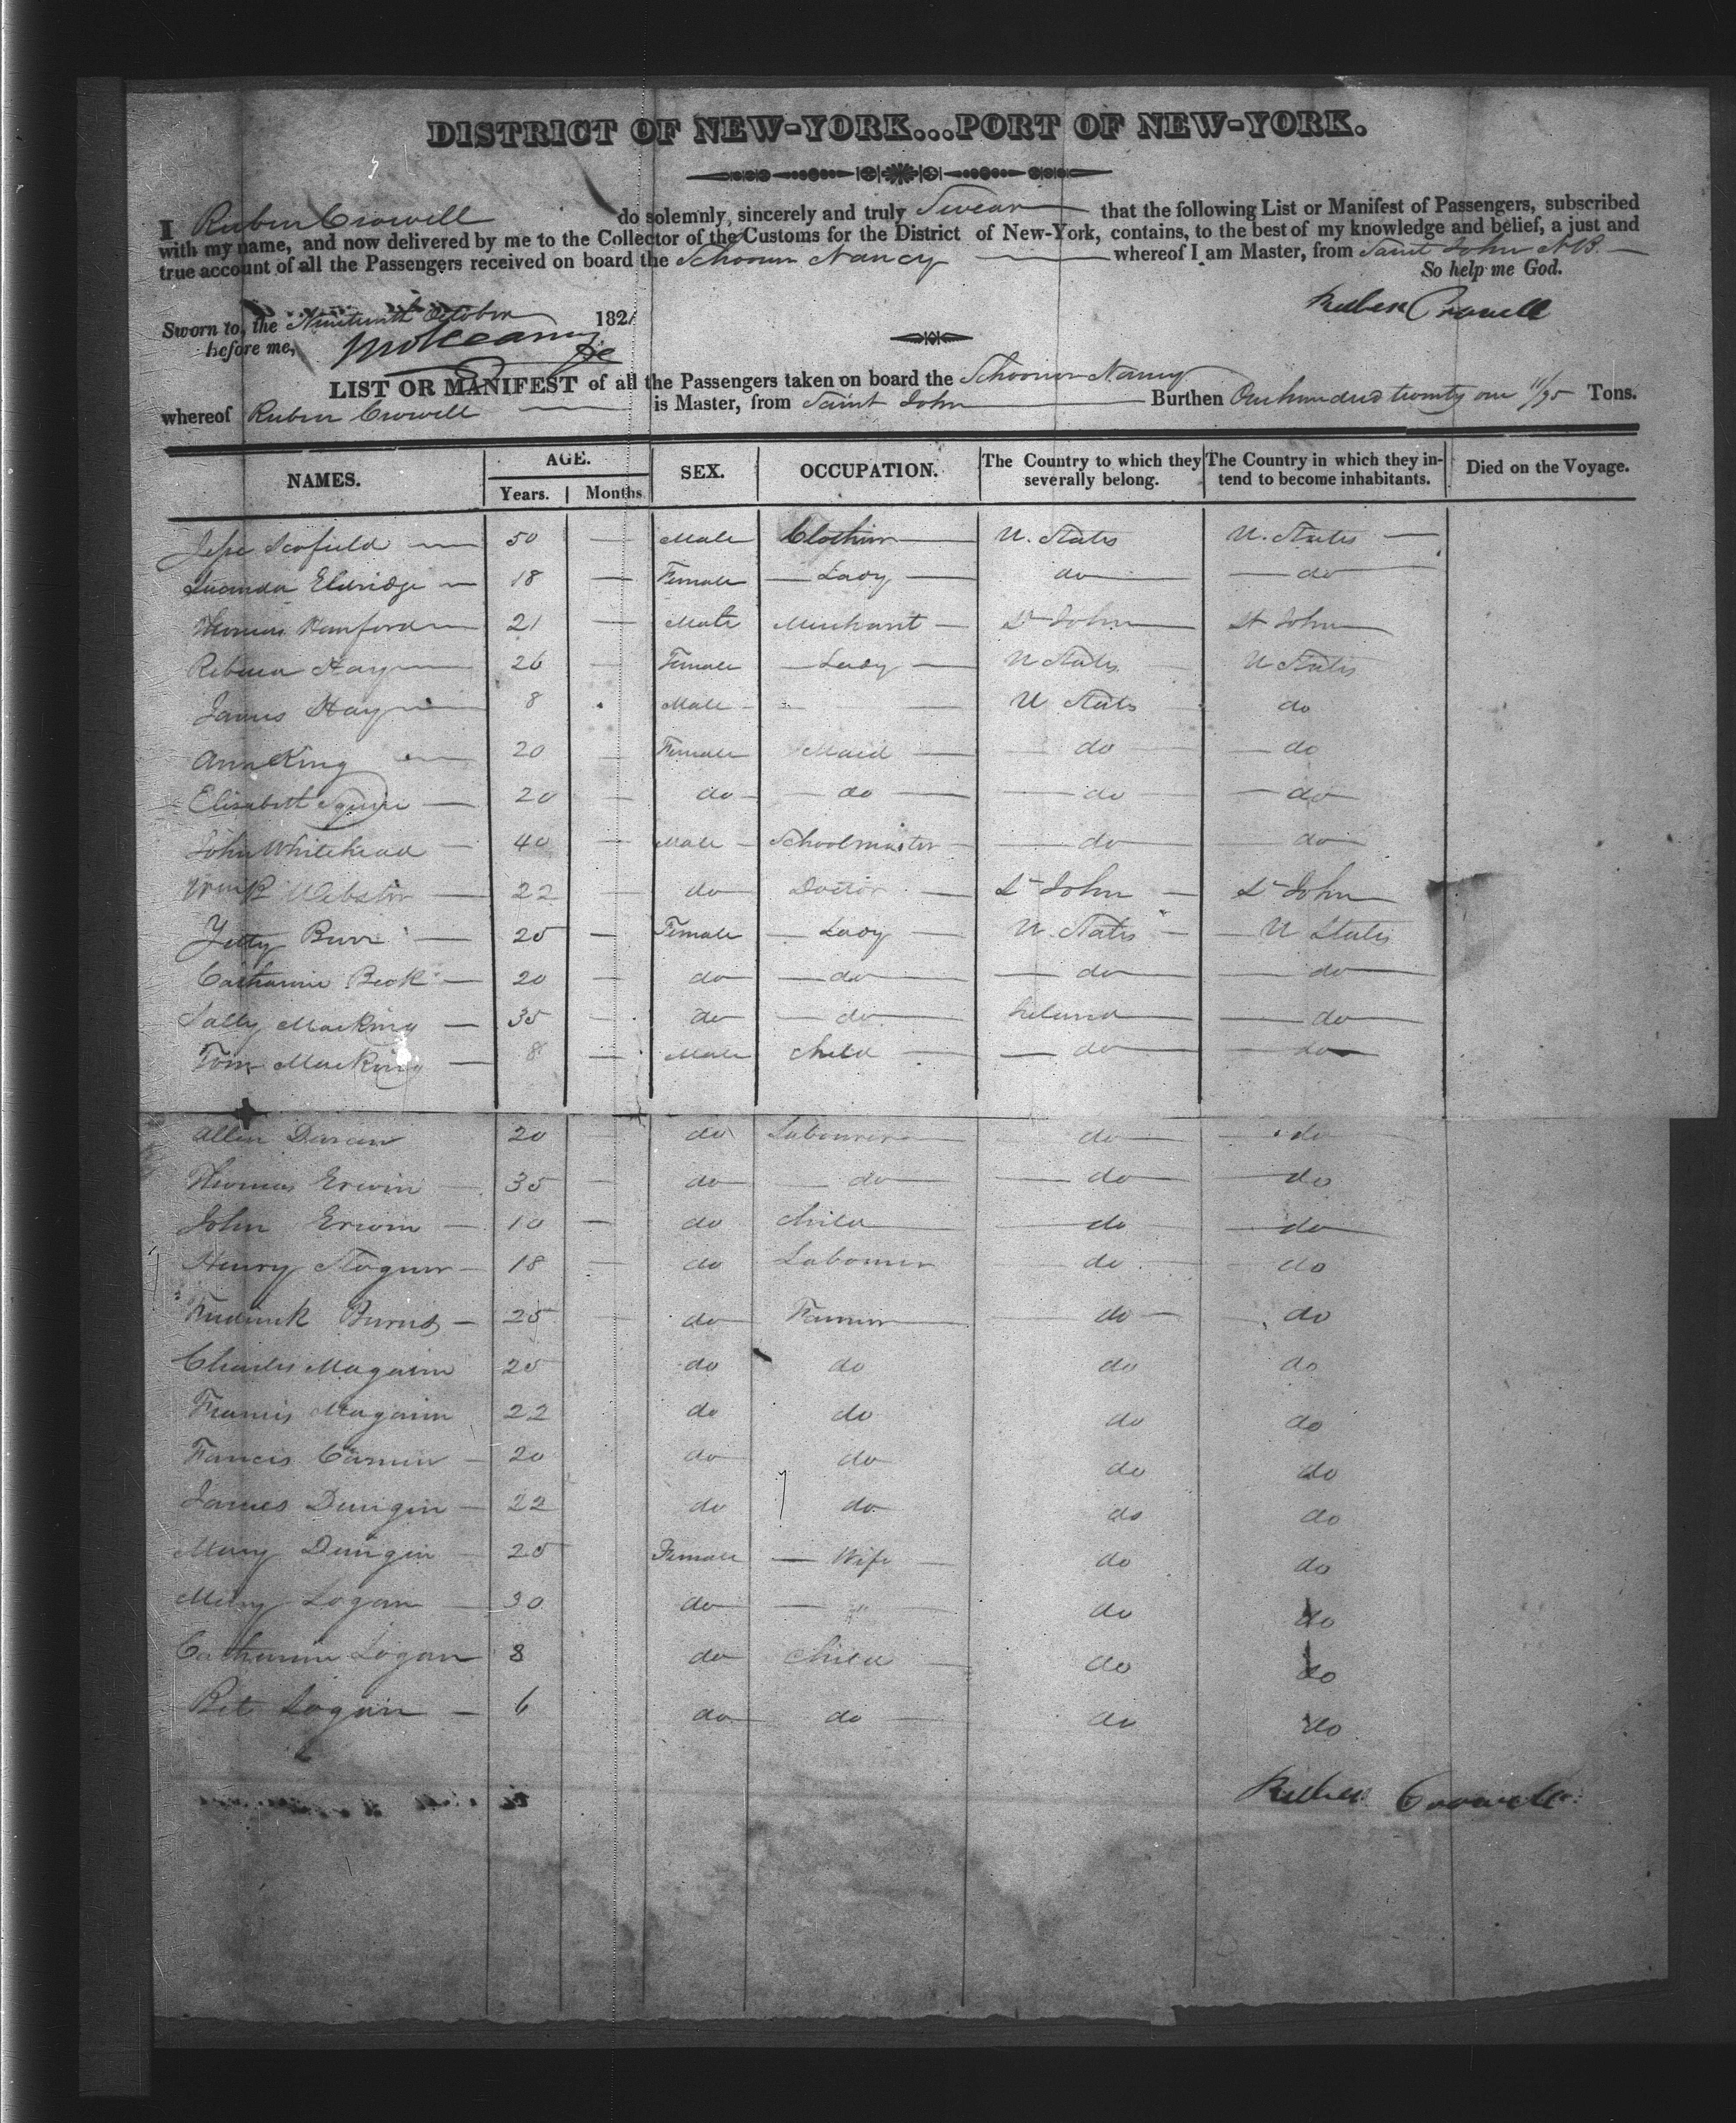 DISTRICT OF NEW-YORK...PORT OF NEW-YORK.
I Ruben Crowell do solemnly, sincerely and truly Swear that the following List or Manifest of Passengers, subscribed
with my name, and now delivered by me to the Collector of the Customs for the District of New-York, contains, to the best of my knowledge and belief, a just and
true account of all the Passengers received on board the Schooner Nancy whereof I am Master, from Saint John N.B.
So help me God.
Sworn to, the Nineteenth October 182 Reuben Crowell
before me,
LIST OR MANIFEST of all the Passengers taken on board the Schooner Nancy
whereof Ruben Crowell is Master, from Saint John Burthen One hundred twenty one 11/95 Tons.
NAMES. AGE. Years. Months. SEX. OCCUPATION. The Country to which they severally belong. The Country in which they intend to become inhabitants. Died on the Voyage.
Jesse Scofield 50 Male Clothier U. States U. States
Lucinda Eldridge 18 Female Lady do do
Thomas Hanford 21 Male Merchant St John St John
Rebecca Hay 26 Female Lady U States U States
James Hay 8 Male U States do
Ann King 20 Female Maid do do
Elisabeth Squire 20 do do do do
John Whitehead 40 Male Schoolmaster do do
Webster 22 do Doctor St John St John
Burr 25 Female Lady U. States U States
Catharine Beck 20 do do do do
Sally MacKing 35 do do Ireland do
Tom MacKing 8 Male child do do
Allen 20 do Labourer do do
Thomas Erwin 35 do do do do
John Erwin 10 do child do do
Henry 18 do Labourer do do
Frederick Burns 25 do Farmer do do
Charles Magairn 25 do do do do
Francis Magairn 22 do do do do
Francis 20 do do do do
James Dungin 22 do do do do
Mary Dungin 25 Female Wife do do
Mary Logan 30 do " do do
Catharine Logan 8 do child do do
Logan 6 do do do do
Reuben Crowell